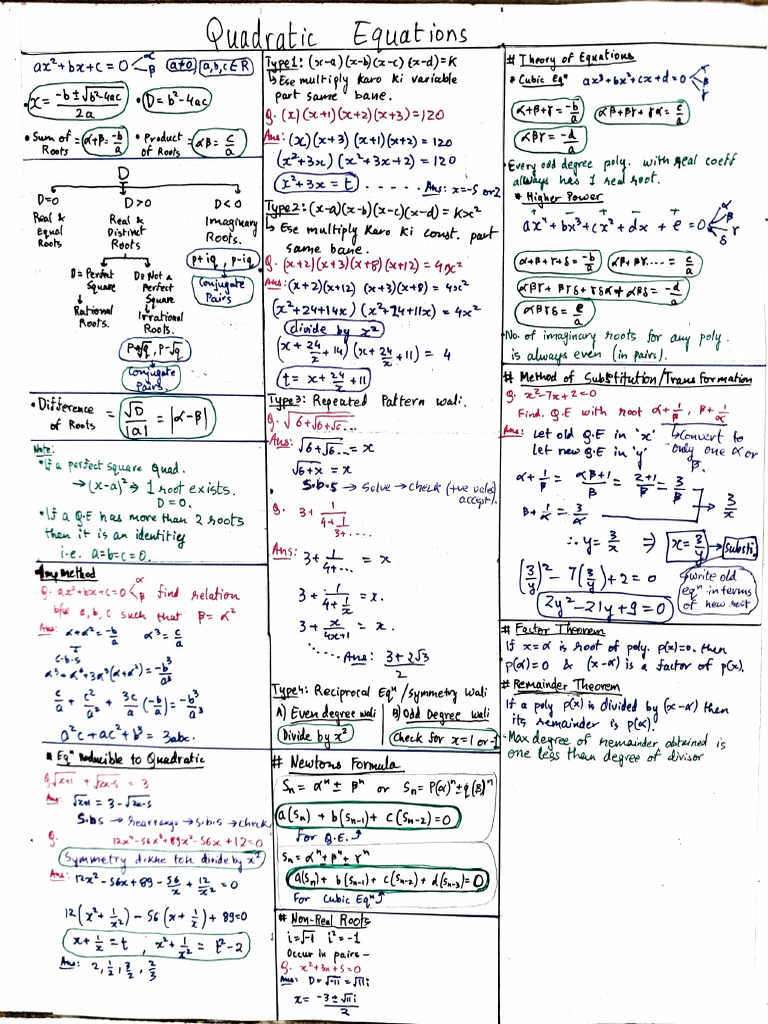 Quadratic Equations
ax² + bx + c = 0 < α β (a≠0, a,b,c ∈ R)
• x = (-b ± √(b²-4ac)) / 2a • D = b² - 4ac
• Sum of Roots = α+β = -b/a • Product of Roots = αβ = c/a
D
D=0 D>0 D<0
Real & Equal Roots
Real & Distinct Roots
Imaginary Roots.
p+iq, p-iq
Conjugate Pairs
D = Perfect Square
D = Not a Perfect Square
Rational Roots.
Irrational Roots.
p+√q, p-√q
Conjugate Pairs.
• Difference of Roots = √D / |a| = |α-β|
Note:
• If a perfect square quad.
→ (x-a)² → 1 root exists.
D = 0.
• If a Q.E has more than 2 roots
then it is an identitiy
i.e. a=b=c=0.
• Imp Method
Q. ax²+bx+c=0 < α β find relation
b/w a, b, c such that β = α²
Ans: α+α² = -b/a α³ = c/a
c.b.s
α³ + α⁶ + 3α³(α+α²) = -b³/a³
c/a + c²/a² + 3c/a (-b/a) = -b³/a³
a²c + ac² + b³ = 3abc.
• Eqⁿ Reducible to Quadratic
Q. √(x+1) + √(2x-5) = 3
Ans: √(x+1) = 3 - √(2x-5)
S.b.s → rearrange → s.b.s → check
Q. 12x⁴ - 56x³ + 89x² - 56x + 12 = 0
Symmetry dikhe toh divide by x²
Ans: 12x² - 56x + 89 - 56/x + 12/x² = 0
12(x² + 1/x²) - 56(x + 1/x) + 89 = 0
x + 1/x = t, x² + 1/x² = t² - 2
Ans: 2, 1/2, 3/2, 2/3
Type 1: (x-a)(x-b)(x-c)(x-d) = K
↳ Ese multiply Karo Ki variable
part same bane.
Q. (x)(x+1)(x+2)(x+3) = 120
Ans: (x)(x+3)(x+1)(x+2) = 120
(x²+3x)(x²+3x+2) = 120
x²+3x = t ..... Ans: x=-5 or 2
Type 2: (x-a)(x-b)(x-c)(x-d) = Kx²
↳ Ese multiply Karo Ki const. part
same bane.
Q. (x+2)(x+3)(x+8)(x+12) = 4x²
Ans: (x+2)(x+12)(x+3)(x+8) = 4x²
(x²+24+14x)(x²+24+11x) = 4x²
divide by x²
(x + 24/x + 14)(x + 24/x + 11) = 4
t = x + 24/x + 11
Type 3: Repeated Pattern wali.
Q. √(6+√(6+√6...
Ans: √(6+√6... = x
√(6+x) = x
S.b.s → solve → check (+ve value accept).
Q. 3 + 1/(4 + 1/(3+....
Ans: 3 + 1/(4+... = x
3 + 1/(4 + 1/x) = x.
3 + x/(4x+1) = x.
...... Ans: (3+2√3)/2
Type 4: Reciprocal Eqⁿ/symmetry wali
A) Even degree wali B) Odd Degree wali
Divide by x² Check for x=1 or -1
# Newtons Formula
Sₙ = αⁿ ± βⁿ or Sₙ = p(α)ⁿ ± q(β)ⁿ
a(Sₙ) + b(Sₙ₋₁) + c(Sₙ₋₂) = 0
For Q.E.
Sₙ = αⁿ ± βⁿ ± γⁿ
a(Sₙ) + b(Sₙ₋₁) + c(Sₙ₋₂) + d(Sₙ₋₃) = 0
For Cubic Eqⁿ
# Non-Real Roots
i = √-1 i² = -1
Occur in pairs -
Q. x² + 3x + 5 = 0
Ans: D = √-11 = √11 i
x = (-3 ± √11 i)/2
# Theory of Equations
• Cubic Eqⁿ ax³+bx²+cx+d=0 < α β γ
α+β+γ = -b/a αβ+βγ+γα = c/a
αβγ = -d/a
• Every odd degree poly. with real coeff
always has 1 real root.
* Higher Power
+ - + - +
ax⁴ + bx³ + cx² + dx + e = 0 < α β γ δ
α+β+γ+δ = -b/a αβ+βγ.... = c/a
αβγ + βγδ + γδα + αβδ = -d/a
αβγδ = e/a
• No. of imaginary roots for any poly.
is always even (in pairs).
# Method of Substitution/Transformation
Q. x²-7x+2=0
Find. Q.E with root α+1/β, β+1/α
Ans: Let old Q.E in 'x'
Let new Q.E in 'y'
↳ Convert to only one α or β.
α+1/β = (αβ+1)/β = (2+1)/β = 3/β
β+1/α = 3/α
3/x
∴ y = 3/x ⇒ x = 3/y → Substi.
(3/y)² - 7(3/y) + 2 = 0
write old eqⁿ in terms of new root
2y² - 21y + 9 = 0
# Factor Theorem
If x=α is root of poly. p(x)=0. then
p(α)=0 & (x-α) is a factor of p(x).
# Remainder Theorem
If a poly p(x) is divided by (x-α) then
its remainder is p(α).
• Max degree of remainder obtained is
one less than degree of divisor